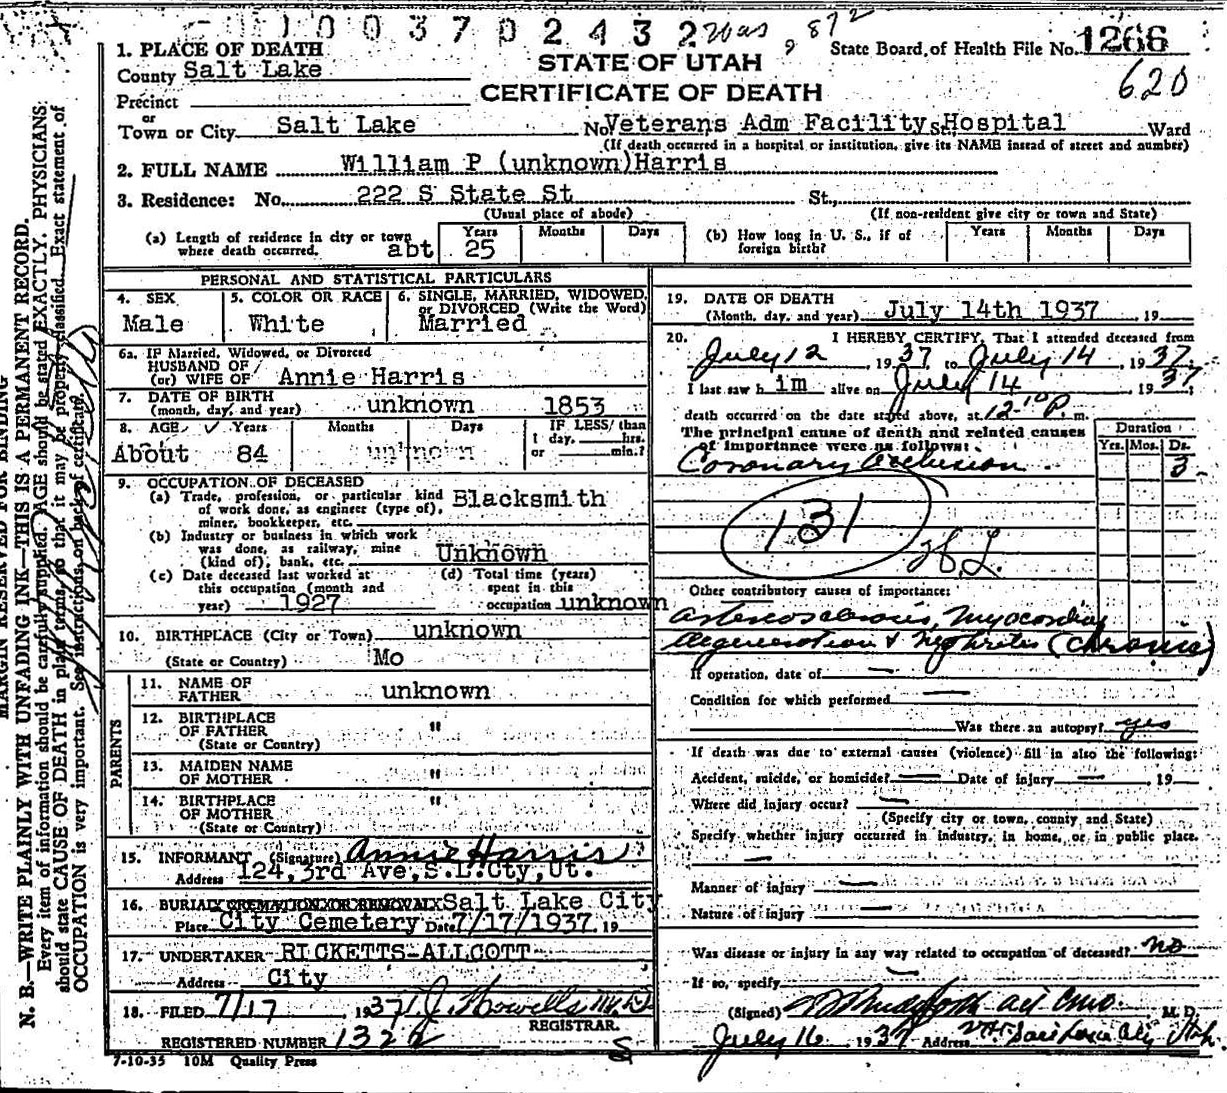 1003702432
872
State Board of Health File No. 1266
620
STATE OF UTAH
CERTIFICATE OF DEATH
1. PLACE OF DEATH
County Salt Lake
Precinct
or
Town or City Salt Lake No. Veterans Adm Facility, S Hospital Ward
(If death occurred in a hospital or institution, give its NAME instead of street and number)
2. FULL NAME William P (unknown) Harris
3. Residence: No. 222 S State St St.,
(Usual place of abode) (If non-resident give city or town and State)
(a) Length of residence in city or town where death occurred. abt Years 25 Months Days
(b) How long in U. S., if of foreign birth? Years Months Days
PERSONAL AND STATISTICAL PARTICULARS
4. SEX Male
5. COLOR OR RACE White
6. SINGLE, MARRIED, WIDOWED, or DIVORCED (Write the Word) Married
6a. IF Married, Widowed, or Divorced
HUSBAND OF
(or) WIFE OF Annie Harris
7. DATE OF BIRTH
(month, day, and year) unknown 1853
8. AGE Years Months Days IF LESS than
1 day, hrs.
or min.?
About 84 unknown
9. OCCUPATION OF DECEASED
(a) Trade, profession, or particular kind of work done, as engineer (type of), miner, bookkeeper, etc. Blacksmith
(b) Industry or business in which work was done, as railway, mine (kind of), bank, etc. Unknown
(c) Date deceased last worked at this occupation (month and year) 1927
(d) Total time (years) spent in this occupation unknown
10. BIRTHPLACE (City or Town) unknown
(State or Country) Mo
PARENTS
11. NAME OF FATHER unknown
12. BIRTHPLACE OF FATHER "
(State or Country)
13. MAIDEN NAME OF MOTHER "
14. BIRTHPLACE OF MOTHER "
(State or Country)
15. INFORMANT (Signature) Annie Harris
Address 124, 3rd Ave, S.L.Cty, Ut.
16. BURIAL, CREMATION OR REMOVAL Salt Lake City
Place City Cemetery Date 7/17/1937 19
17. UNDERTAKER RICKETTS-ALLCOTT
Address City
18. FILED 7/17 1937 J. Howells M.D.
REGISTRAR.
REGISTERED NUMBER 1322
7-10-35 10M Quality Press
19. DATE OF DEATH
(Month, day, and year) July 14th 1937, 19
20. I HEREBY CERTIFY, That I attended deceased from
July 12, 1937, to July 14, 1937.
I last saw him alive on July 14 1937;
death occurred on the date stated above, at 12-10 P. m.
The principal cause of death and related causes of importance were as follows:
Duration
Yrs. Mos. Ds.
Coronary Occlusion. 3
131
Other contributory causes of importance:
Arteriosclerosis, myocardial
degeneration & Nephritis (chronic)
If operation, date of —
Condition for which performed —
Was there an autopsy? yes
If death was due to external causes (violence) fill in also the following:
Accident, suicide, or homicide? — Date of injury — 19
Where did injury occur? —
(Specify city or town, county and State)
Specify whether injury occurred in industry, in home, or in public place.
—
Manner of injury —
Nature of injury —
Was disease or injury in any way related to occupation of deceased? no
If so, specify —
(Signed) act CMO. M. D.
July 16 1937 Address V.A.F. Salt Lake City Utah.
MARGIN RESERVED FOR BINDING
N. B.—WRITE PLAINLY WITH UNFADING INK—THIS IS A PERMANENT RECORD.
Every item of information should be carefully supplied. AGE should be stated EXACTLY. PHYSICIANS
should state CAUSE OF DEATH in plain terms, so that it may be properly classified. Exact statement of
OCCUPATION is very important. See instructions on back of certificate.